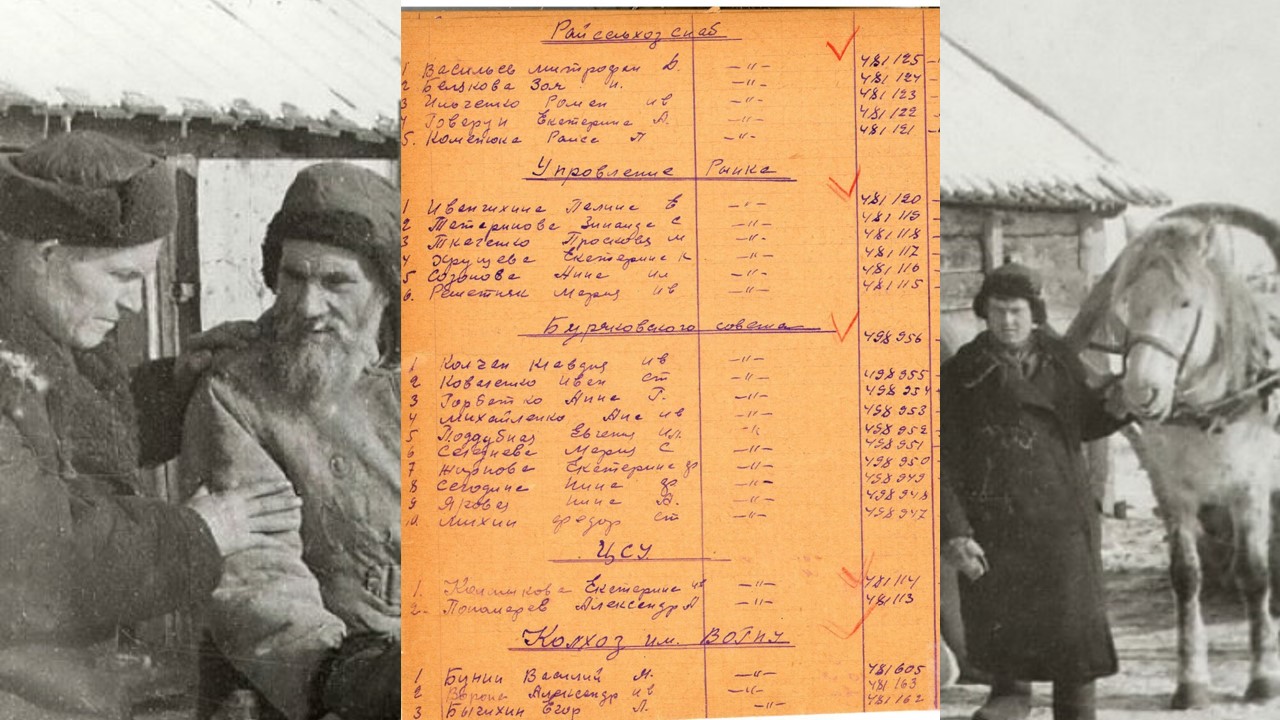 Райсельхоз снаб
1 Васильев Митрофан В. —"— 481125
2 Белякова Зоя И. —"— 481124
3 Ильченко Роман ив —"— 481123
4 Говерун Екатерина А. —"— 481122
5. Раиса П —"— 481121
Управление Рынка
1 Иванчихина Палина Е —"— 481120
2 Татаринова Зинаида С —"— 481119
3 Ткаченко Просковя М —"— 481118
4 Хрущева Екатерина К —"— 481117
5 Созонова Анна ил —"— 481116
6. Решетняк Мария ив —"— 481115
Буряковского совета 498956
1 Колчан Клавдия ив —"—
2 Коваленко Иван Ст —"— 498955
3 Горбатко Анна Г. —"— 498954
4 Михайленко Ана ив —"— 498953
5 Поддубная Евгения ил. —"— 498952
6 Мария С —"— 498951
7 Жирнова Екатерина фр —"— 498950
8 Сегодина Нина фр —"— 498949
9 Яковец Нина В. —"— 498948
10. Михин Федор Ст —"— 498947
ЦСУ
1. Калмыкова Екатерина ив —"— 481114
2. Пономарев Александр А —"— 481113
Колхоз им. ВОГПУ
1 Бунин Василий М. —"— 481605
2 Ворона Александр ив —"— 481163
3 Бычихин Егор Л. —"— 481162